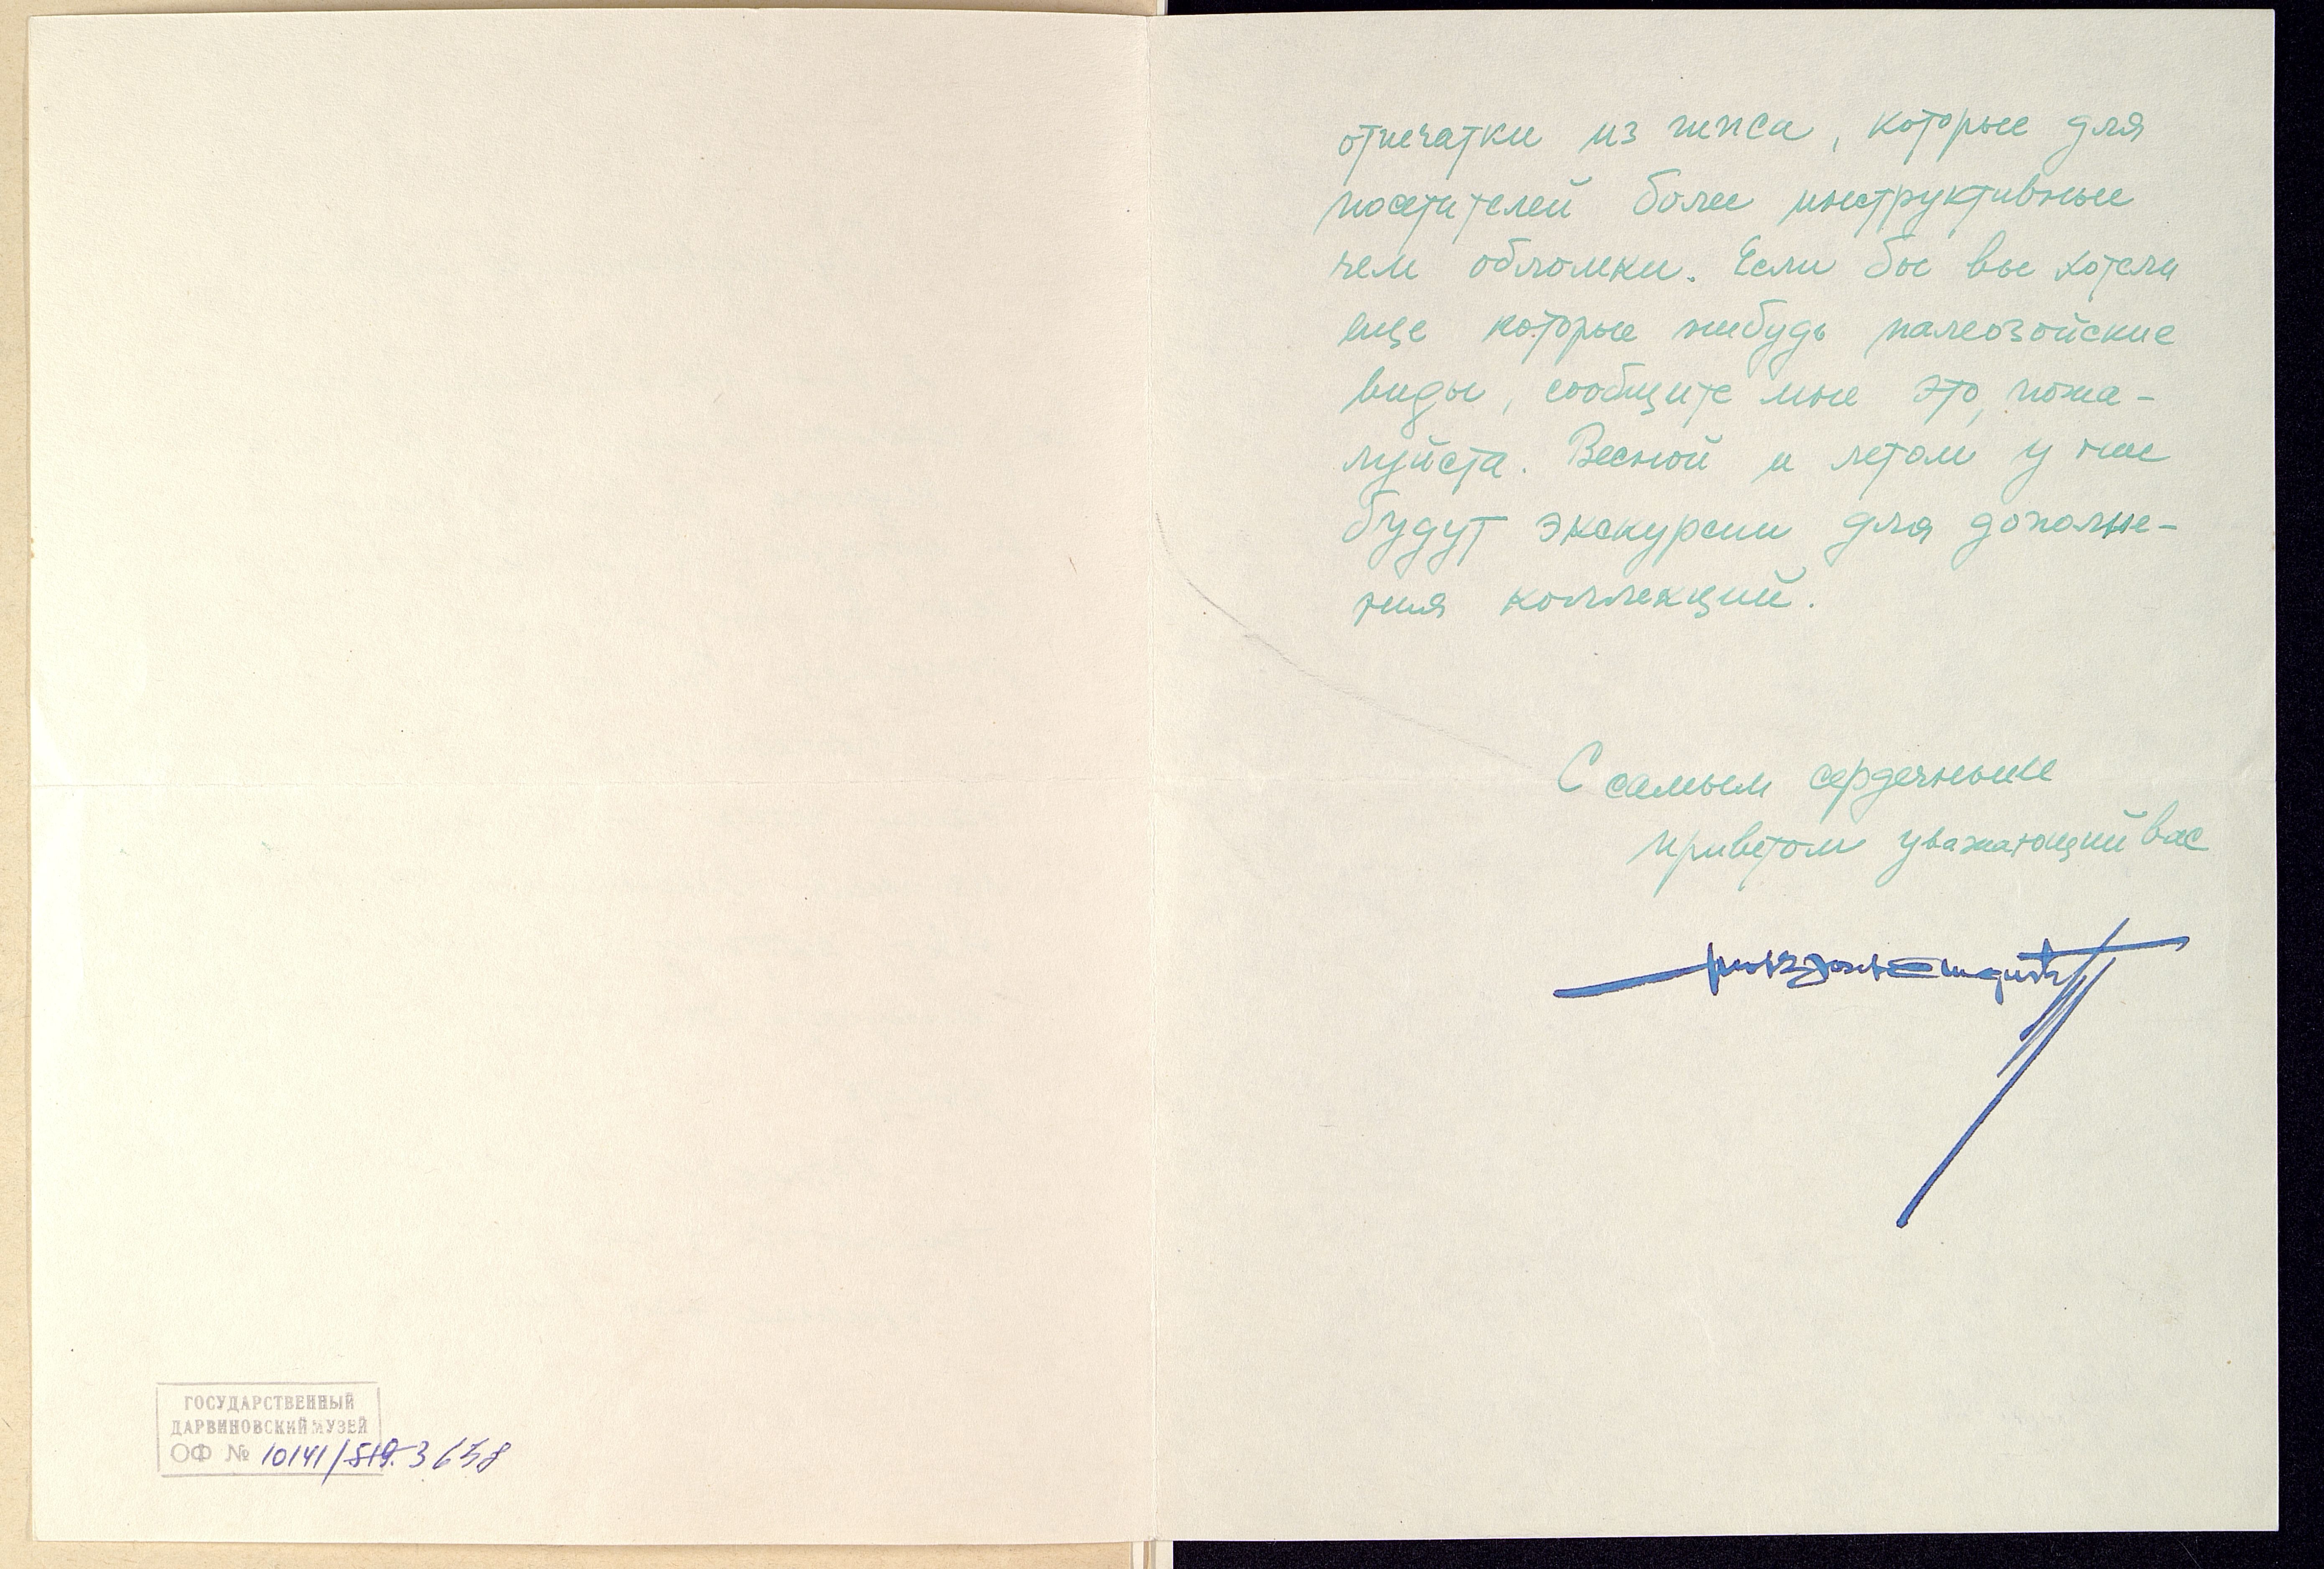 отпечатки из гипса, которые для
посетителей более инструктивные
чем обломки. Если бы вы хотели
еще которые нибудь палеозойские
виды, сообщите мне это, пожа-
луйста. Весной и летом у нас
будут экскурсии для дополне-
ния коллекций.
С самым сердечным
приветом уважающий вас
ГОСУДАРСТВЕННЫЙ
ДАРВИНОВСКИЙ МУЗЕЙ
ОФ № 10141/519. 3658